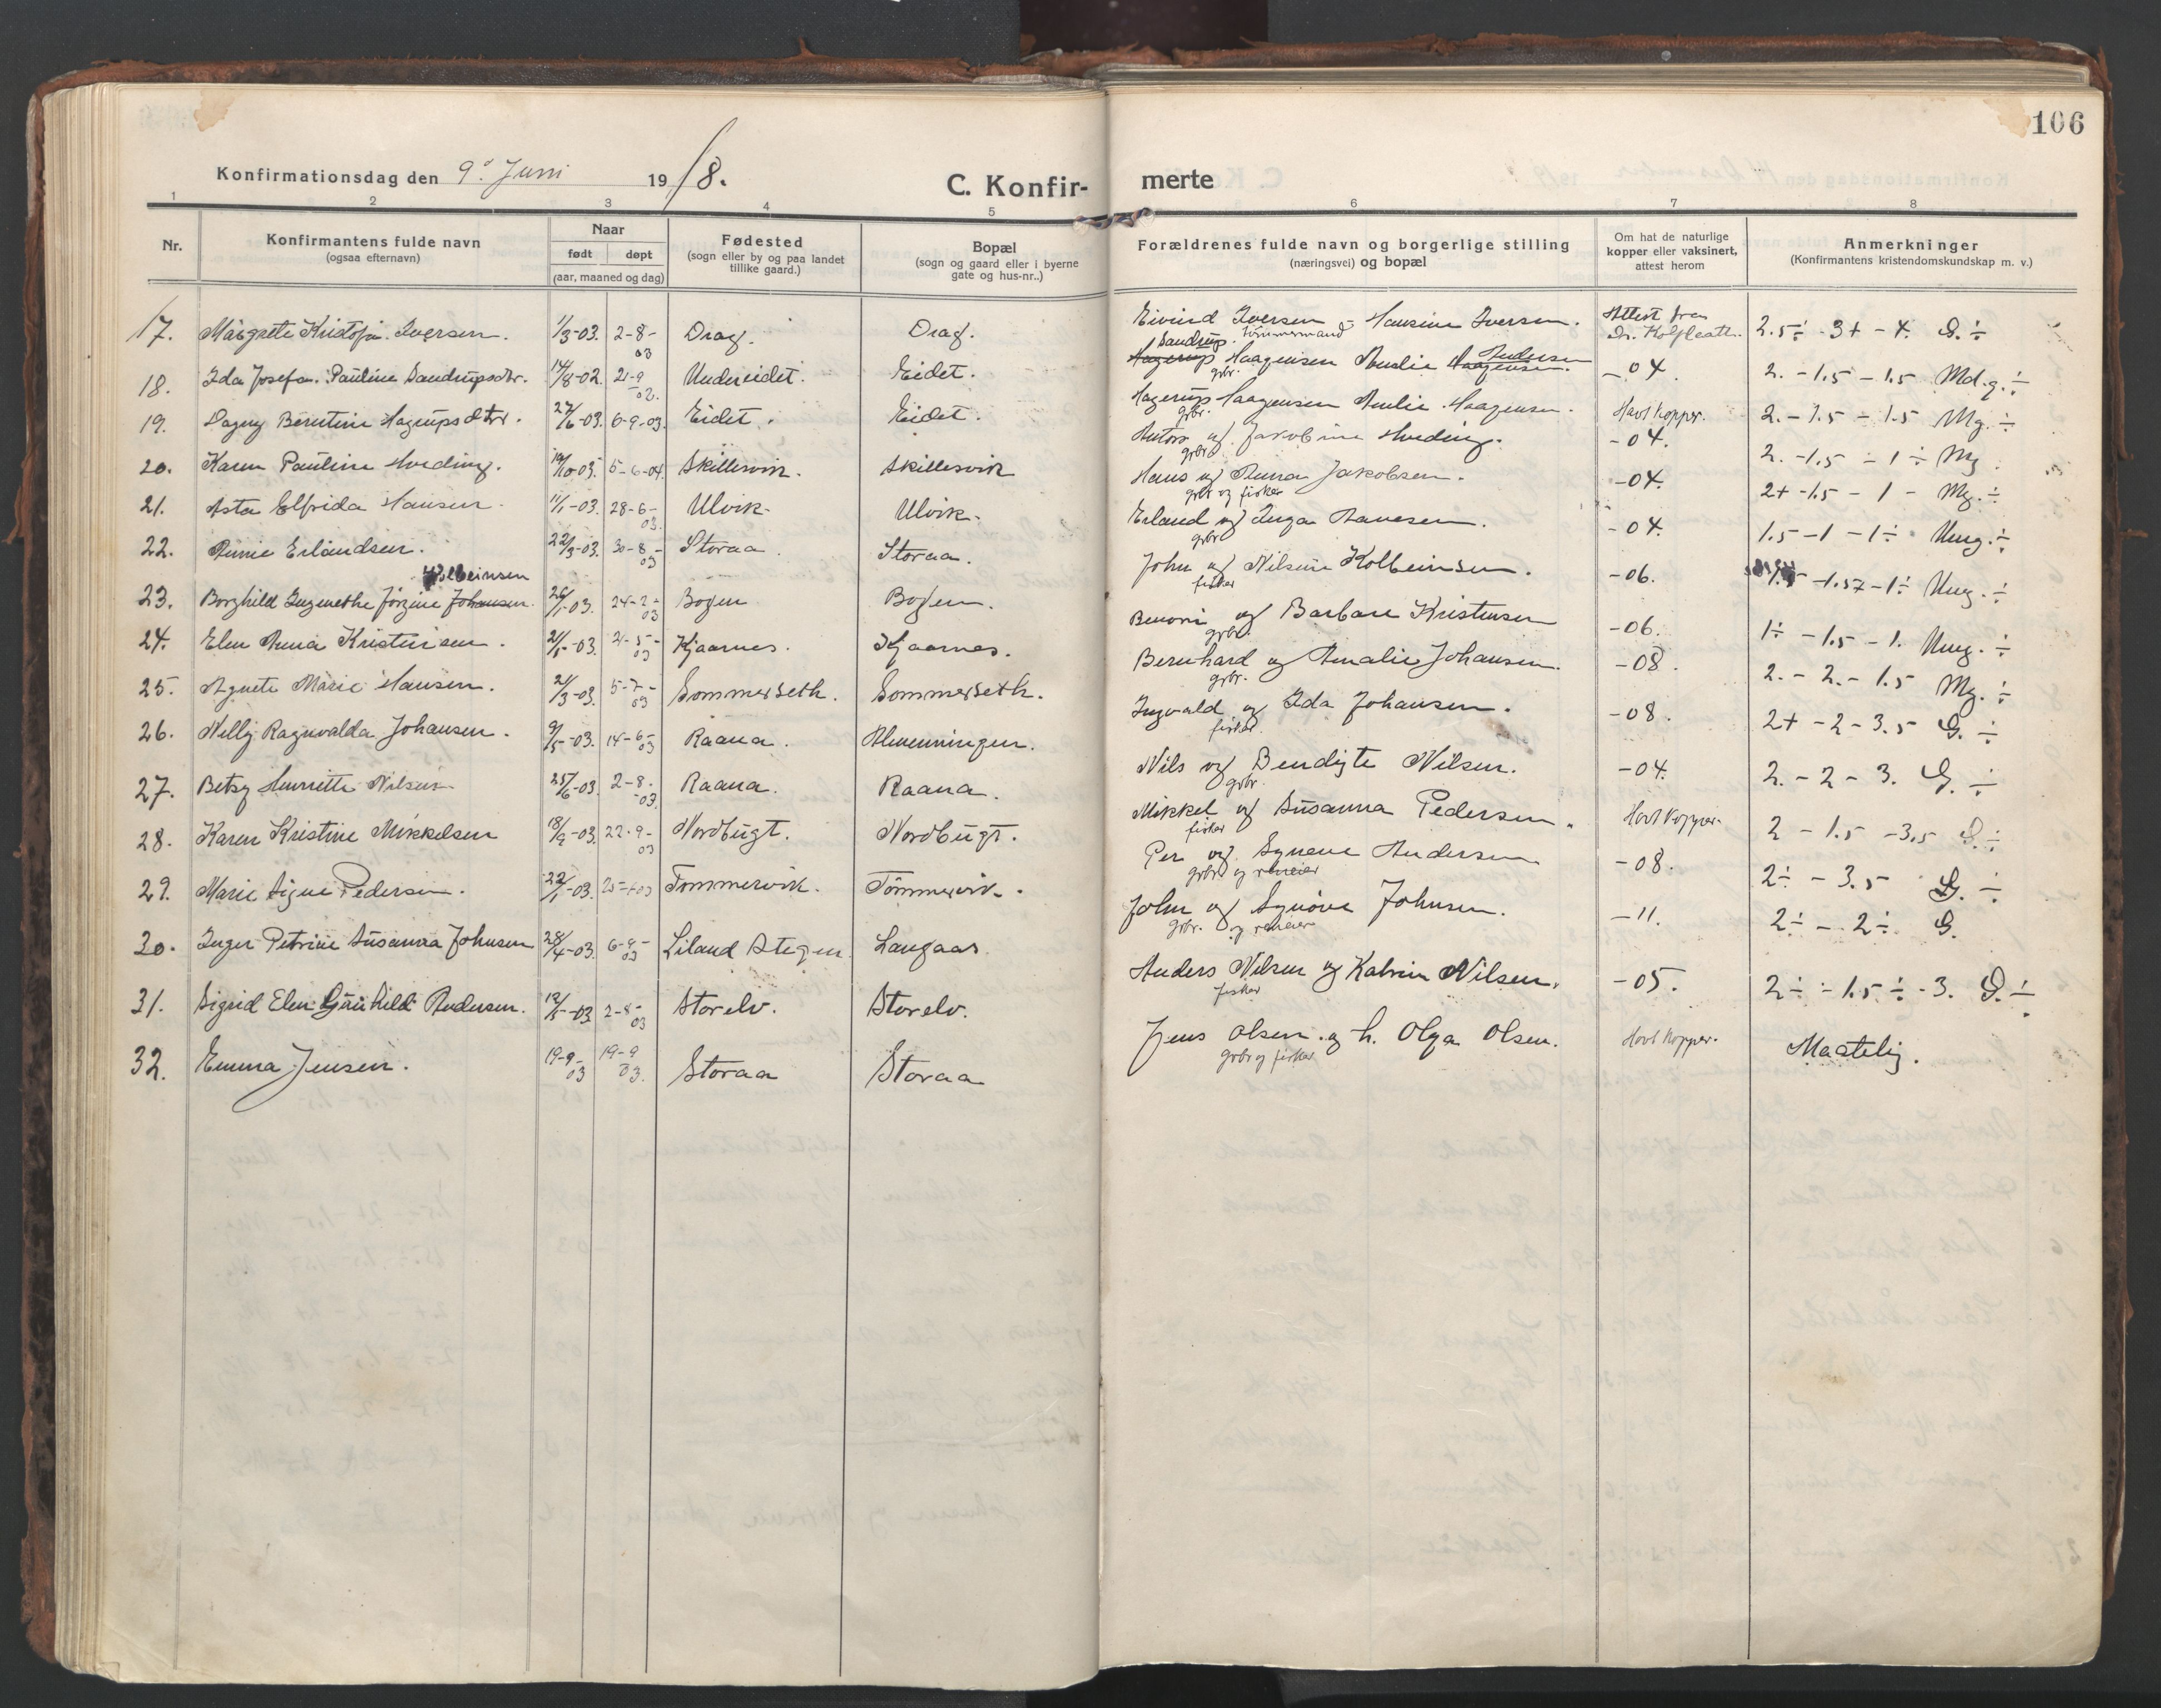 106
Konfirmationsdag den 9. Juni 1918.
C. Konfir- merte
1 2 3 4 5 6 7 8
Nr.
Konfirmantens fulde navn
(ogsaa efternavn)
Naar
født døpt
(aar, maaned og dag)
Fødested
(sogn eller by og paa landet
tillike gaard.)
Bopæl
(sogn og gaard eller i byerne
gate og hus-nr..)
Forældrenes fulde navn og borgerlige stilling
(næringsvei) og bopæl
Om hat de naturlige
kopper eller vaksinert,
attest herom
Anmerkninger
(Konfirmantens kristendomskundskap m. v.)
17. Margrete Kristofa Iversen. 1/3-03. 2-8-03 Drag. Drag. Eivind Iversen - Hansine Iversen. Attest fra Dr. 2.5÷ -3+ -4. G. ÷
tømmermand
18. Ida Josefa Pauline Sandrupsdtr. 14/8-02. 21-9-02. Undereidet. Eidet. Sandrup Haagensen Amalie Andersen -04. 2. -1.5 -1.5 Md.g. ÷
Hagerup Haagensen
gbr.
19. Dagny Berntine Hagrupsdtr. 27/6-03. 6-9-03. Eidet. Eidet. Hagerup Haagensen Amlie Haagensen. Havt kopper. 2. -1.5 -1.5 Mg. ÷
gbr.
20. Karen Pauline Hveding. 19/10-03. 5-6-04. Skillesvik. Skillesvik Anton og Jakobine Hveding. -04. 2. -1.5 -1÷ Mg.
grbr.
21. Asta Elfrida Hansen. 11/1-03. 28-6-03. Ulvik. Ulvik. Hans og Anna Jakobsen. -04. 2+ -1.5 -1 - Mg. ÷
grbr og fisker
22. Annie Erlandsen. 22/3-03. 30-8-03 Storaa. Storaa. Erland og Inga Hansen. -04. 1.5 -1 -1÷ Umg. ÷
grbr
Kolbeinsen
23. Borghild Ingenethe Jörgine Johansen. 26/1-03. 24-2-03 Bogen Bogen. John og Nilsine Kolbeinsen. -06. 1.5 -1.5 -1÷ Umg. ÷
fisker
24. Elen Anna Kristensen. 21/1-03. 21-5-03 Kjaarnes. Kjaarnes. Benoni og Barbare Kristensen -06. 1÷ -1.5 -1. Umg. ÷
grbr.
25. Agnete Marie Hansen. 21/3-03. 5-7-03 Sommerseth. Sommerseth. Bernhard og Amalie Johansen. -08. 2. -2. -1.5 Mg. ÷
grbr.
26. Nelly Ragnvalda Johansen. 9/5-03. 14-6-03 Raana. Almenningen. Ingvald og Ida Johansen. -08. 2+ -2 -3.5 G. ÷
fisker
27. Betsy Henriette Nilsen 25/6-03. 2-8-03. Raana. Raana. Nils og Bendigte Nilsen. -04. 2. -2 -3. G. ÷
grbr.
28. Karen Kristine Mikkelsen 18/9-03. 22-9-03 Nordbugt. Nordbugt. Mikkel og Susanna Pedersen. Havt Kopper. 2 -1.5 -3.5 G. ÷
fisker
29. Marie Signe Pedersen. 22/1-03. Tommervik. Tommervik. Per og Synnve Andersen -08. 2÷ -3.5 G. ÷
grbr og reneier
30. Inger Petrine Susanna Johnsen 28/4-03. 6-9-03 Liland Steigen Langaas John og Synöve Johnsen. -11. 2÷ -2÷ G.
grbr. og reneier
31. Sigrid Elen Gunhild Andersen. 12/5-03. 2-8-03 Storelv. Storelv. Anders Nilsen og Katrin Nilsen. -05. 2÷ -1.5÷ -3. G. ÷
fisker
32. Emma Jensen. 19-9-03 19-9 03. Storaa Storaa Jens Olsen og h. Olga Olsen. Havt kopper. Maatelig.
grbr og fisker